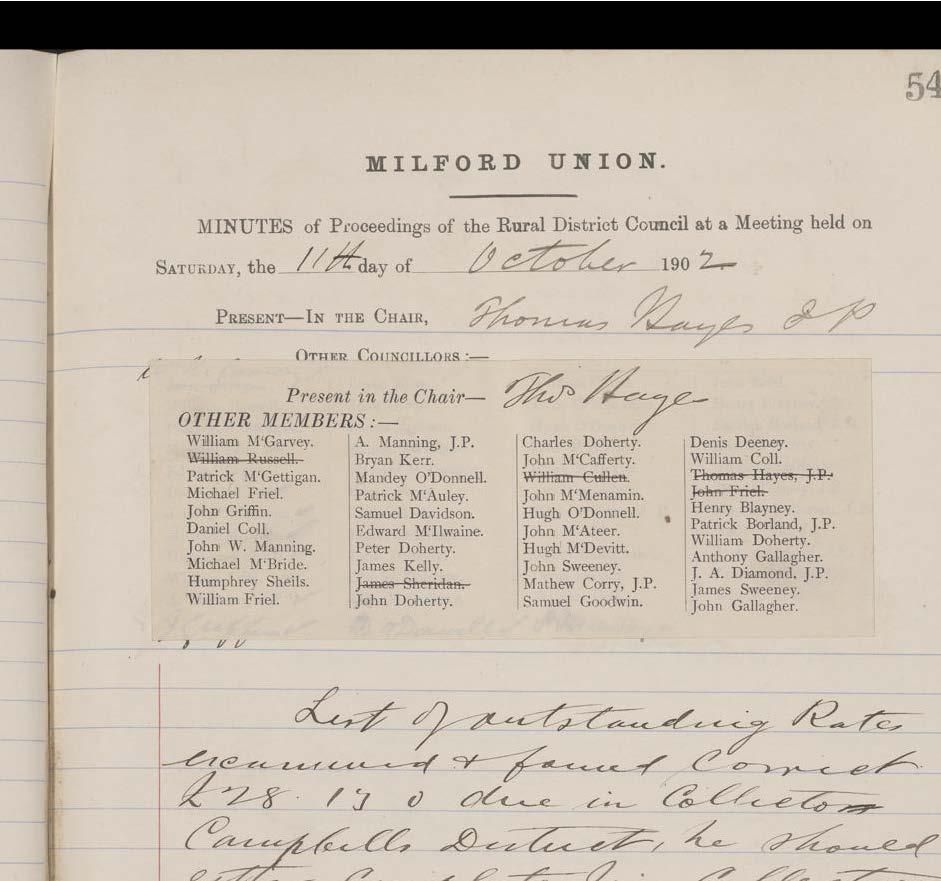 54
MILFORD UNION.
MINUTES of Proceedings of the Rural District Council at a Meeting held on
SATURDAY, the 11th day of October 1902
PRESENT—IN THE CHAIR, Thomas Hayes J P
OTHER COUNCILLORS :—
Present in the Chair— Thos Hayes
OTHER MEMBERS :—
William M‘Garvey.
William Russell.
Patrick M‘Gettigan.
Michael Friel.
John Griffin.
Daniel Coll.
John W. Manning.
Michael M‘Bride.
Humphrey Sheils.
William Friel.
A. Manning, J.P.
Bryan Kerr.
Mandey O’Donnell.
Patrick M‘Auley.
Samuel Davidson.
Edward M‘Ilwaine.
Peter Doherty.
James Kelly.
James Sheridan.
John Doherty.
Charles Doherty.
John M‘Cafferty.
William Cullen.
John M‘Menamin.
Hugh O’Donnell.
John M‘Ateer.
Hugh M‘Devitt.
John Sweeney.
Mathew Corry, J.P.
Samuel Goodwin.
Denis Deeney.
William Coll.
Thomas Hayes, J.P.
John Friel.
Henry Blayney.
Patrick Borland, J.P.
William Doherty.
Anthony Gallagher.
J. A. Diamond, J.P.
James Sweeney.
John Gallagher.
List of outstanding Rates
examined & found Correct
due in Collector
Campbells District, he should